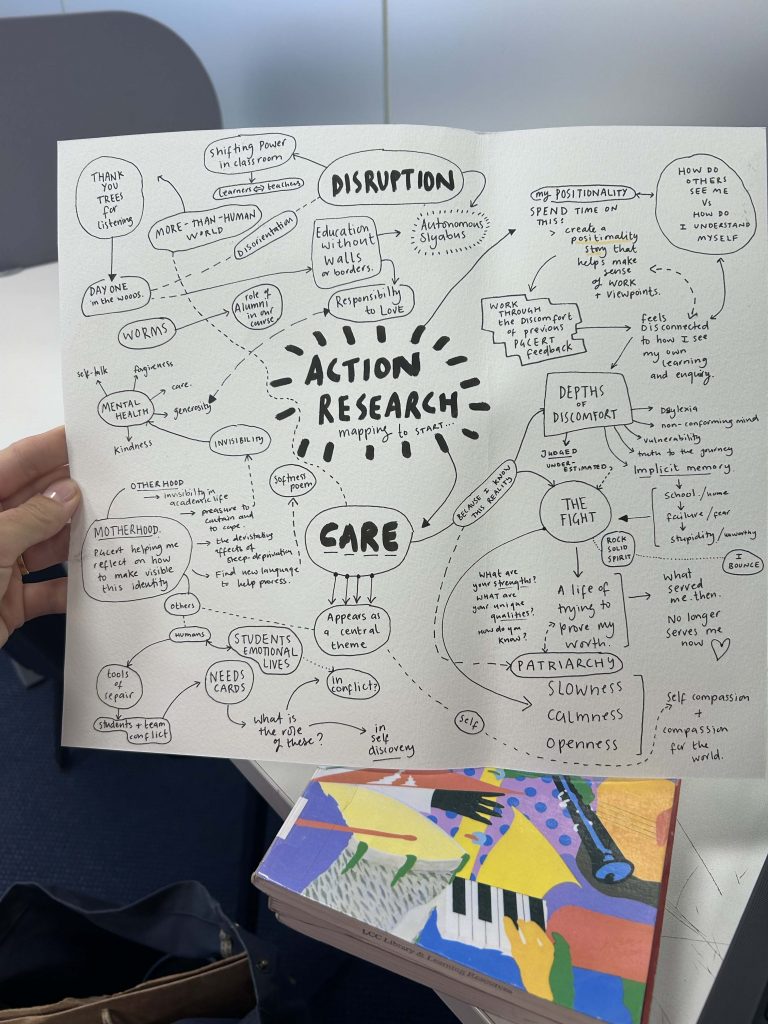 THANK
YOU
TREES
for
listening
Shifting Power
in classroom
Learners ⇔ teachers
DISRUPTION
MORE-THAN-HUMAN
WORLD
Disorientation
Education
without
walls
or borders.
Autonomous
Slyabus
DAY ONE
in the woods.
WORMS
role of
Alumni
in our
course
Responsibility
to LOVE
ACTION
RESEARCH
mapping to START...
self-talk
forgiveness
care.
MENTAL
HEALTH
generosity
Kindness
INVISIBILITY
my POSITIONALITY
SPEND TIME ON
THIS!
> create a
positionality
story that
helps make
sense
of WORK
+ viewpoints.
HOW DO
OTHERS
SEE ME
VS
HOW DO
I UNDERSTAND
MYSELF
WORK
THROUGH
the Discomfort
of previous
PGCERT
feedback
feels
Disconnected
to how I see
my own
learning
and enquiry.
DEPTHS
OF
DISCOMFORT
Dyslexia
non-conforming mind
vulnerability
truth to the journey
Implicit memory
School/home
failure/fear
stupidity/unworthy
JUDGED
UNDER-
ESTIMATED
BECAUSE I KNOW
THIS REALITY
THE
FIGHT
ROCK
SOLID
SPIRIT
I
BOUNCE
OTHERHOOD
invisibility in
academic life
MOTHERHOOD.
PGcert helping me
reflect on how
to make visible
this identity
pressure to
contain and
to cope.
the devistating
affects of
sleep-deprivation
Find new language
to help process.
Softness
poem
CARE
Appears as
a central
theme
Others
Humans
STUDENTS
EMOTIONAL
LIVES
tools
of
repair
students + team
conflict
NEEDS
CARDS
What is
the role
of these?
in
conflict?
in
self
discovery
WHAT ARE
your strengths?
WHAT ARE
your unique
qualities?
How do you
know?
A life of
trying to
prove my
worth.
What
served
me then.
No longer
serves me
now
PATRIARCHY
SLOWNESS
CALMNESS
OPENNESS
Self
Self compassion
+
compassion
for the
world.
LCC Library & Learning Resources